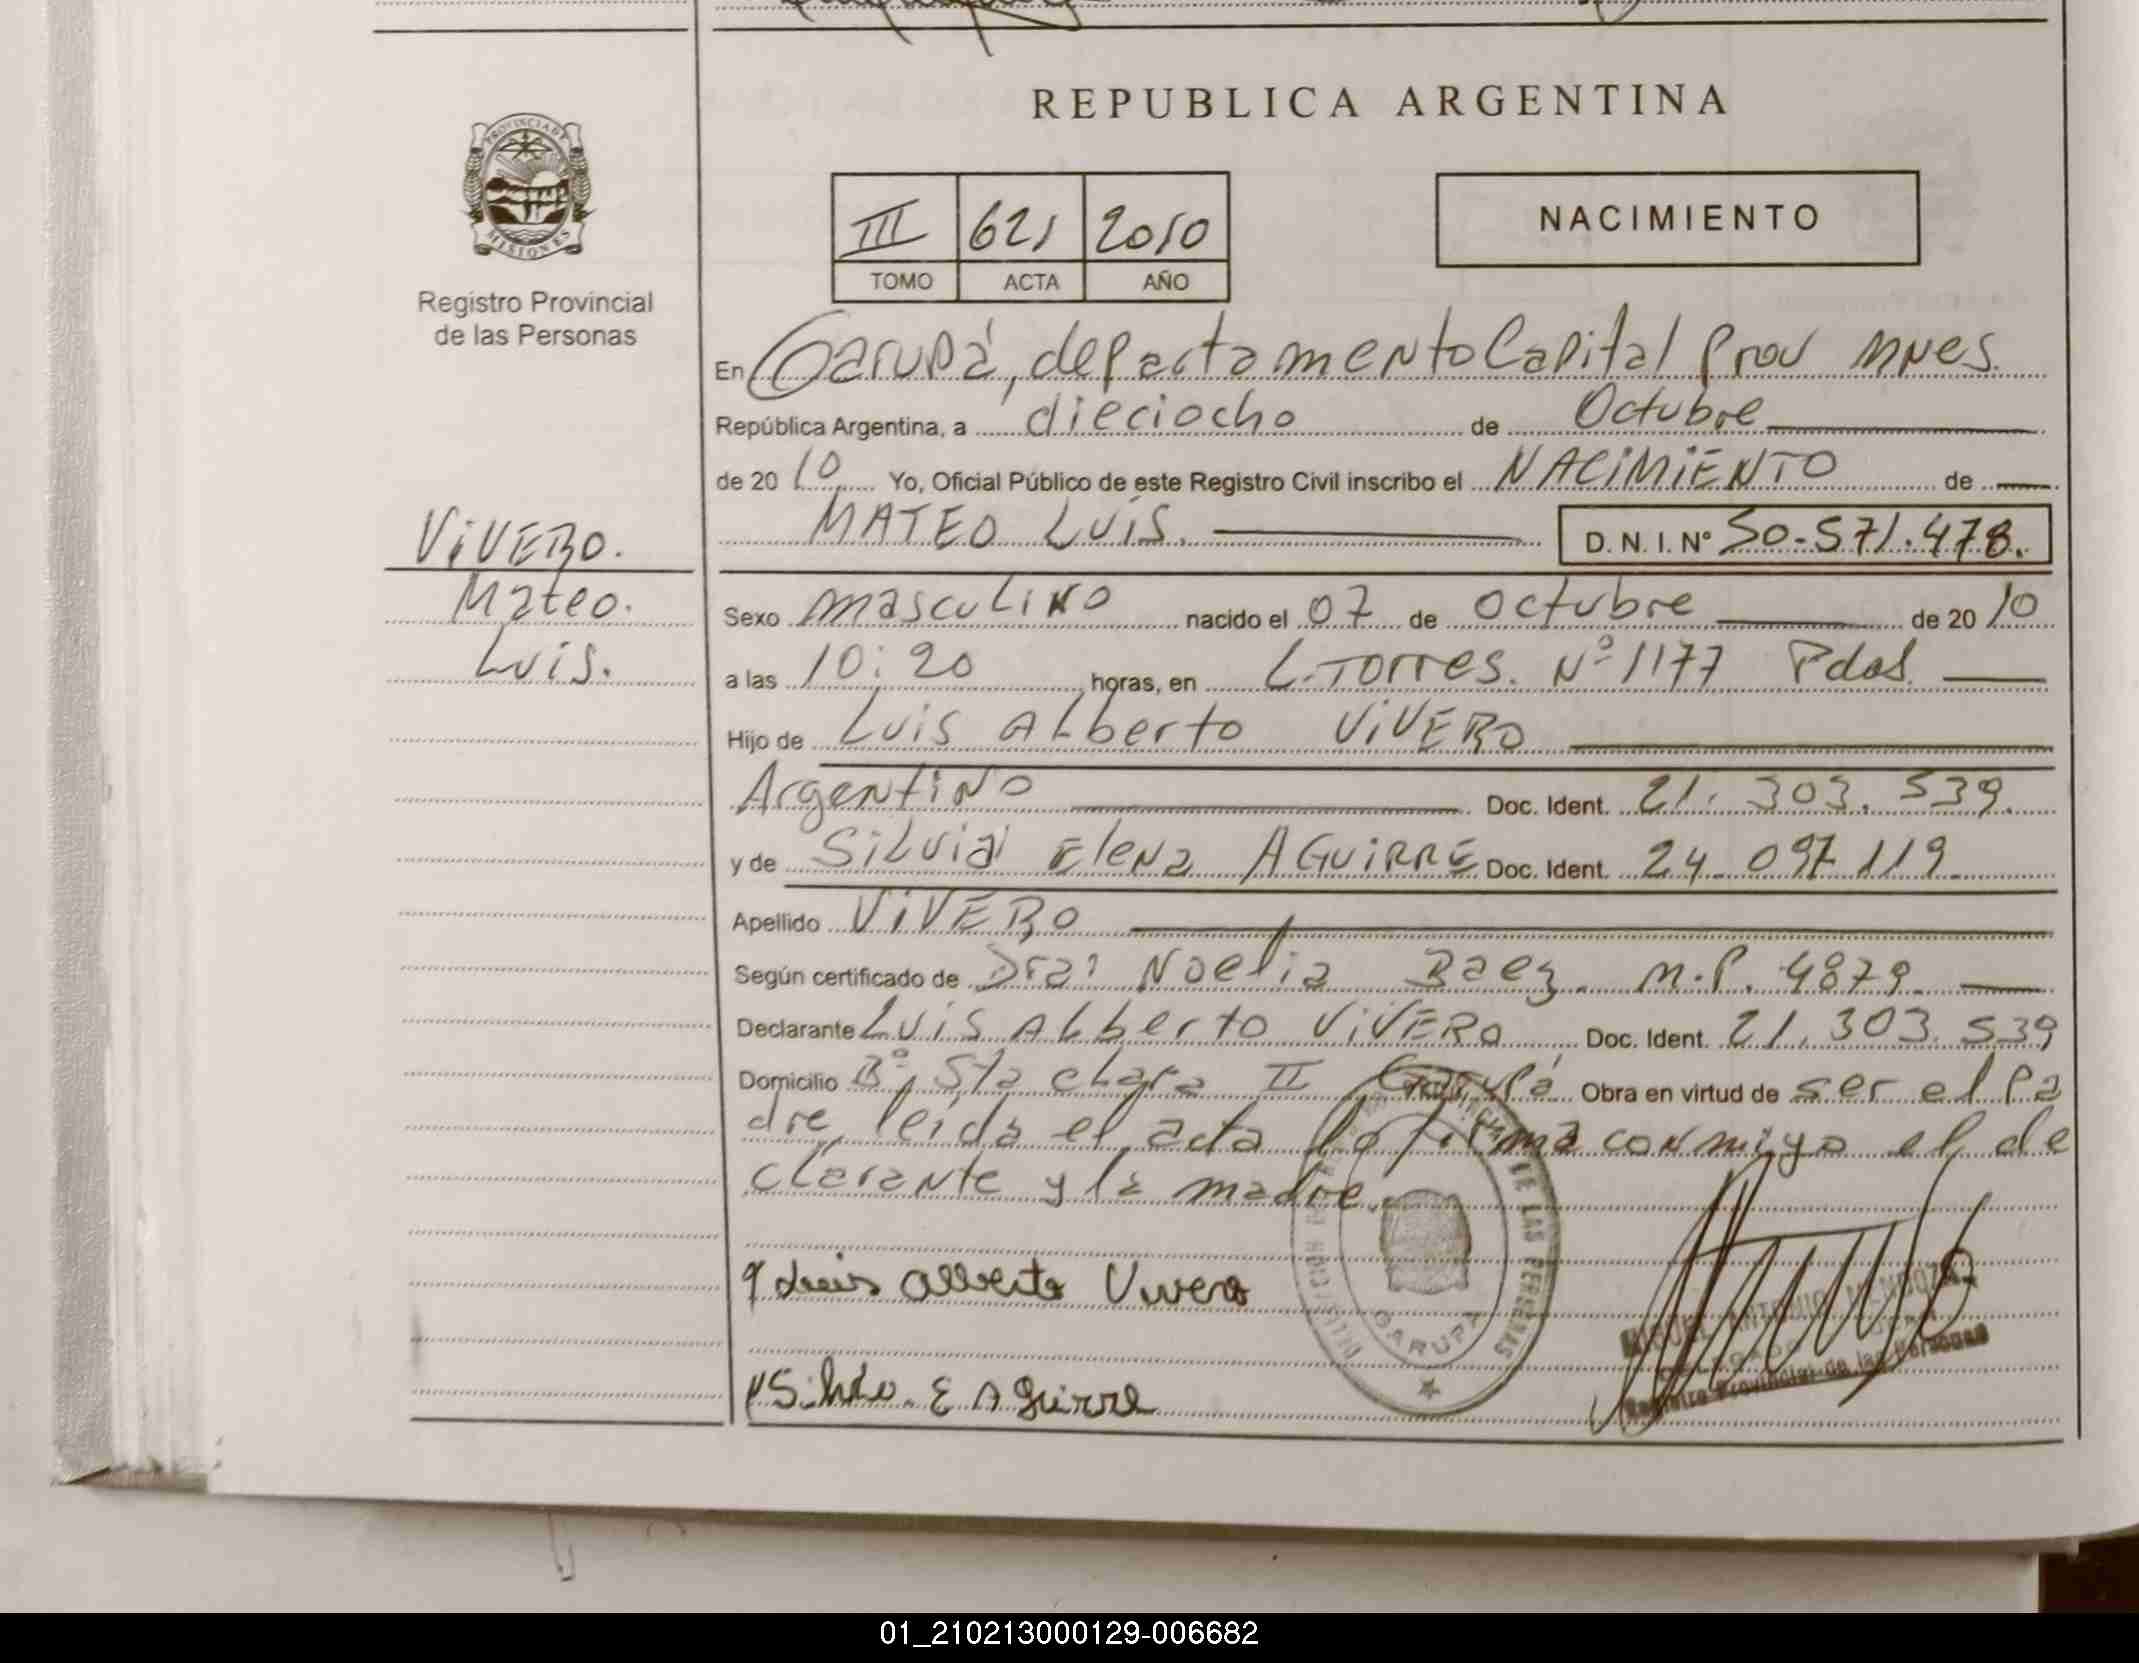 REPUBLICA ARGENTINA
PROVINCIA DE
MISIONES
Registro Provincial
de las Personas
III 621 2010
TOMO ACTA AÑO
NACIMIENTO
En Garupá, departamento Capital Prov mnes.
República Argentina, a dieciocho de Octubre
de 2010 Yo, Oficial Público de este Registro Civil inscribo el NACIMIENTO de
MATEO LUIS. D. N. I. Nº 50-571.478.
VIVERO.
Mateo.
Luis.
Sexo masculino nacido el 07 de Octubre de 2010
a las 10:20 horas, en L. Torres. Nº 1177 Pdas.
Hijo de Luis Alberto VIVERO
Argentino Doc. Ident. 21.303.539.
y de Silvia Elena AGUIRRE Doc. Ident. 24.097.119
Apellido VIVERO
Según certificado de Dra: Noelia Baez. M.P. 4879
Declarante Luis Alberto VIVERO Doc. Ident. 21.303.539
Domicilio Bº Sta Clara II Garupá Obra en virtud de ser el pa
dre, leída el acta la firma conmigo el de
clarante y la madre.
Luis Alberto Vivero
Silvia. E Aguirre
DE LAS PERSONAS
GARUPA
MIGUEL ANTONIO MENDOZA
Registro Provincial de las Personas
01_210213000129-006682